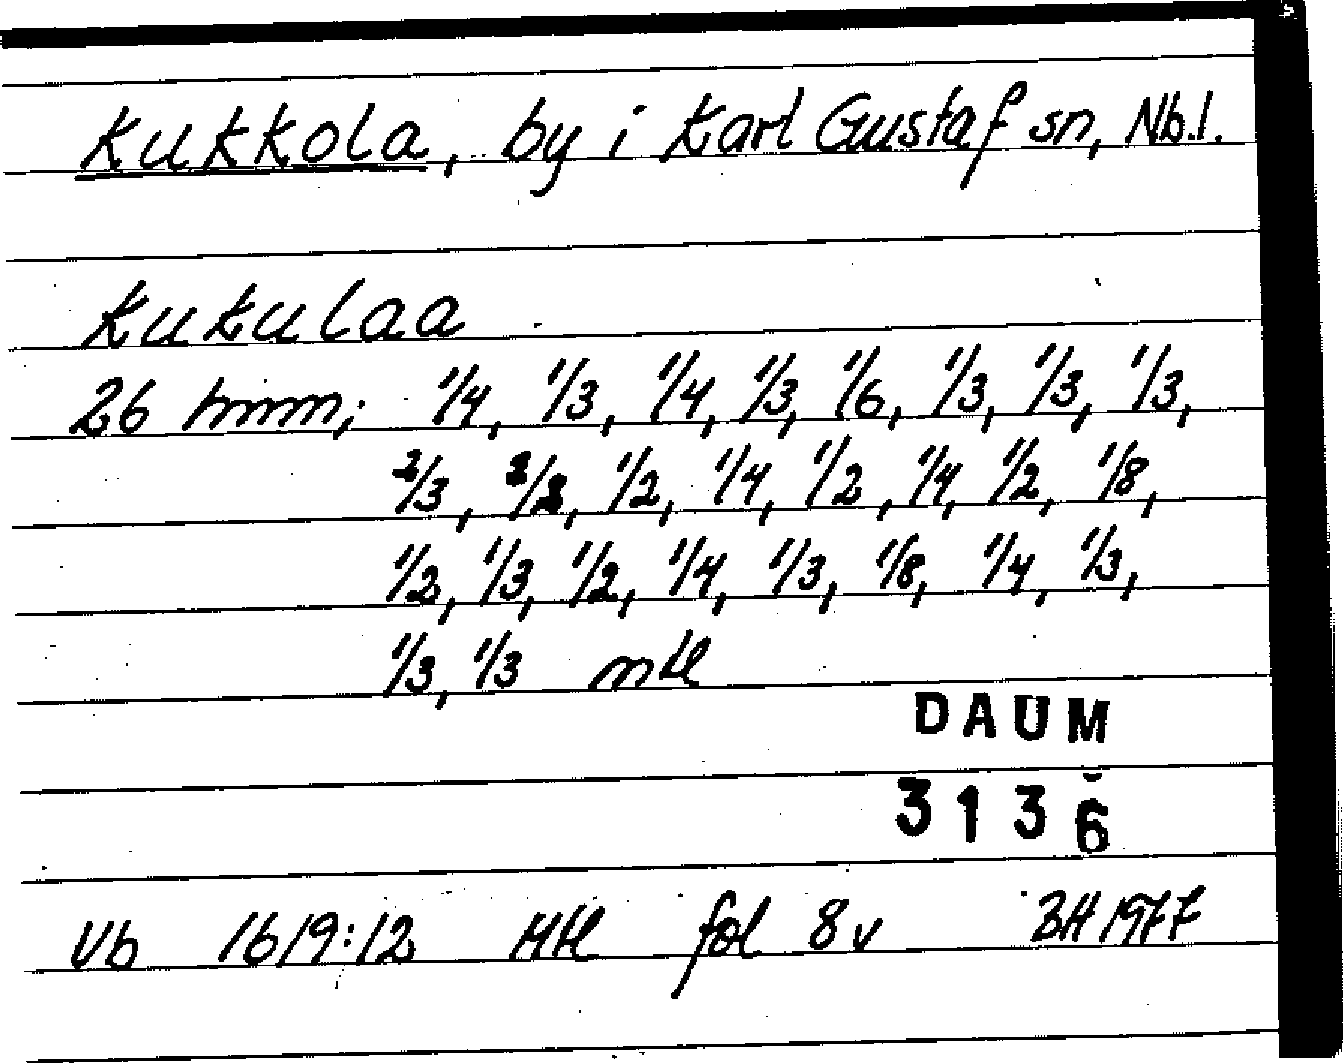 Kukkola, by i Karl Gustaf sn, Nb.l.
Kukulaa
26 hmm; 1/4, 1/3, 1/4, 1/3, 1/6, 1/3, 1/3, 1/3,
2/3, 2/3, 1/2, 1/4, 1/2, 1/4, 1/2, 1/8,
1/2, 1/3, 1/2, 1/4, 1/3, 1/8, 1/4, 1/3,
1/3, 1/3 mtl
DAUM
3136
Vb 1619:12 fol 8v BH 1977